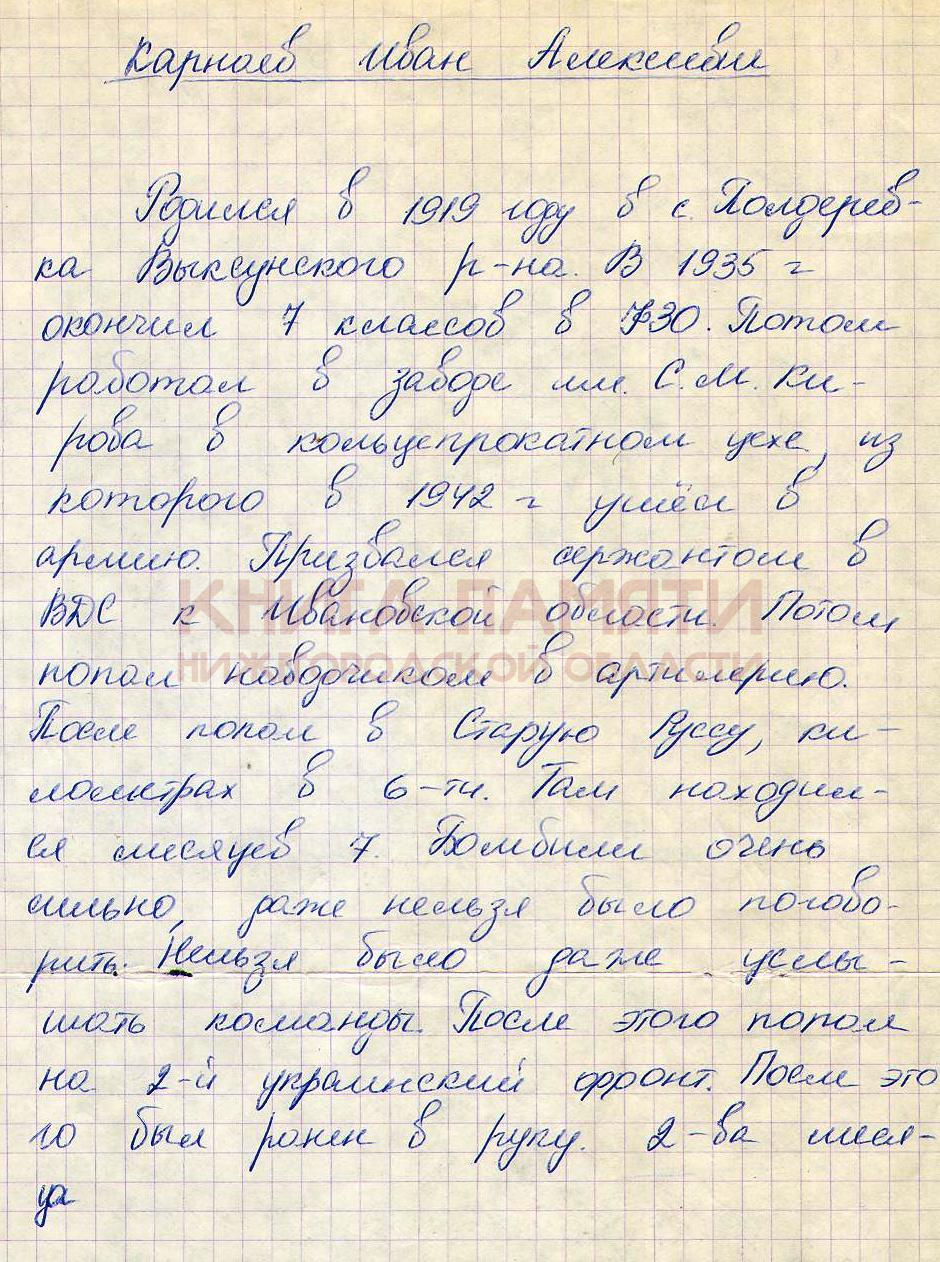 Карнаев Иван Алексеви
Родился в 1919 году в с. Полдерев-
ка Выксунского р-на. В 1935 г
окончил 7 классов в ФЗО. Потом
работал в заводе им. С.М. Ки-
рова в кольцепрокатном цехе, из
которого в 1942 г ушёл в
армию. Призвался сержантом в
ВДС к Ивановской области. Потом
КНИГА ПАМЯТИ
НИЖЕГОРОДСКОЙ ОБЛАСТИ
попал наводчиком в артилерию.
После попал в Старую Руссу, ки-
лометрах в 6-ти. Там находил-
ся месяцев 7. Бомбили очень
сильно, даже нельзя было погово-
рить. Нельзя было даже услы-
шать команды. После этого попал
на 2-й украинский фронт. После это
го был ранен в руку. 2-ва меся-
ца